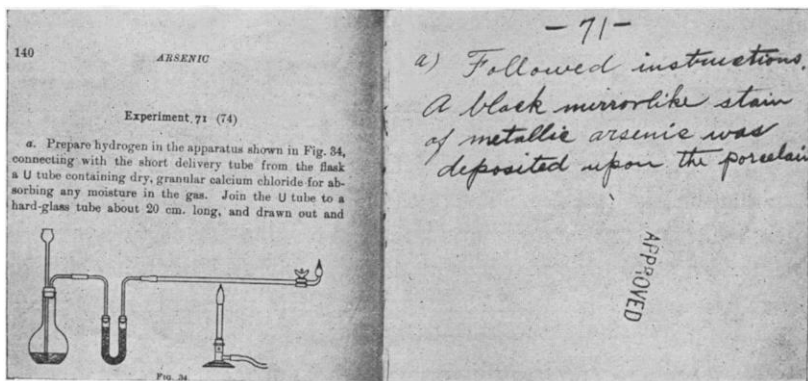 140
ARSENIC
Experiment 71 (74)
a. Prepare hydrogen in the apparatus shown in Fig. 34,
connecting with the short delivery tube from the flask
a U tube containing dry, granular calcium chloride for ab-
sorbing any moisture in the gas. Join the U tube to a
hard-glass tube about 20 cm. long, and drawn out and
FIG. 34
- 71 -
a) Followed instructions.
A black mirrorlike stain
of metallic arsenic was
deposited upon the porcelain
APPROVED